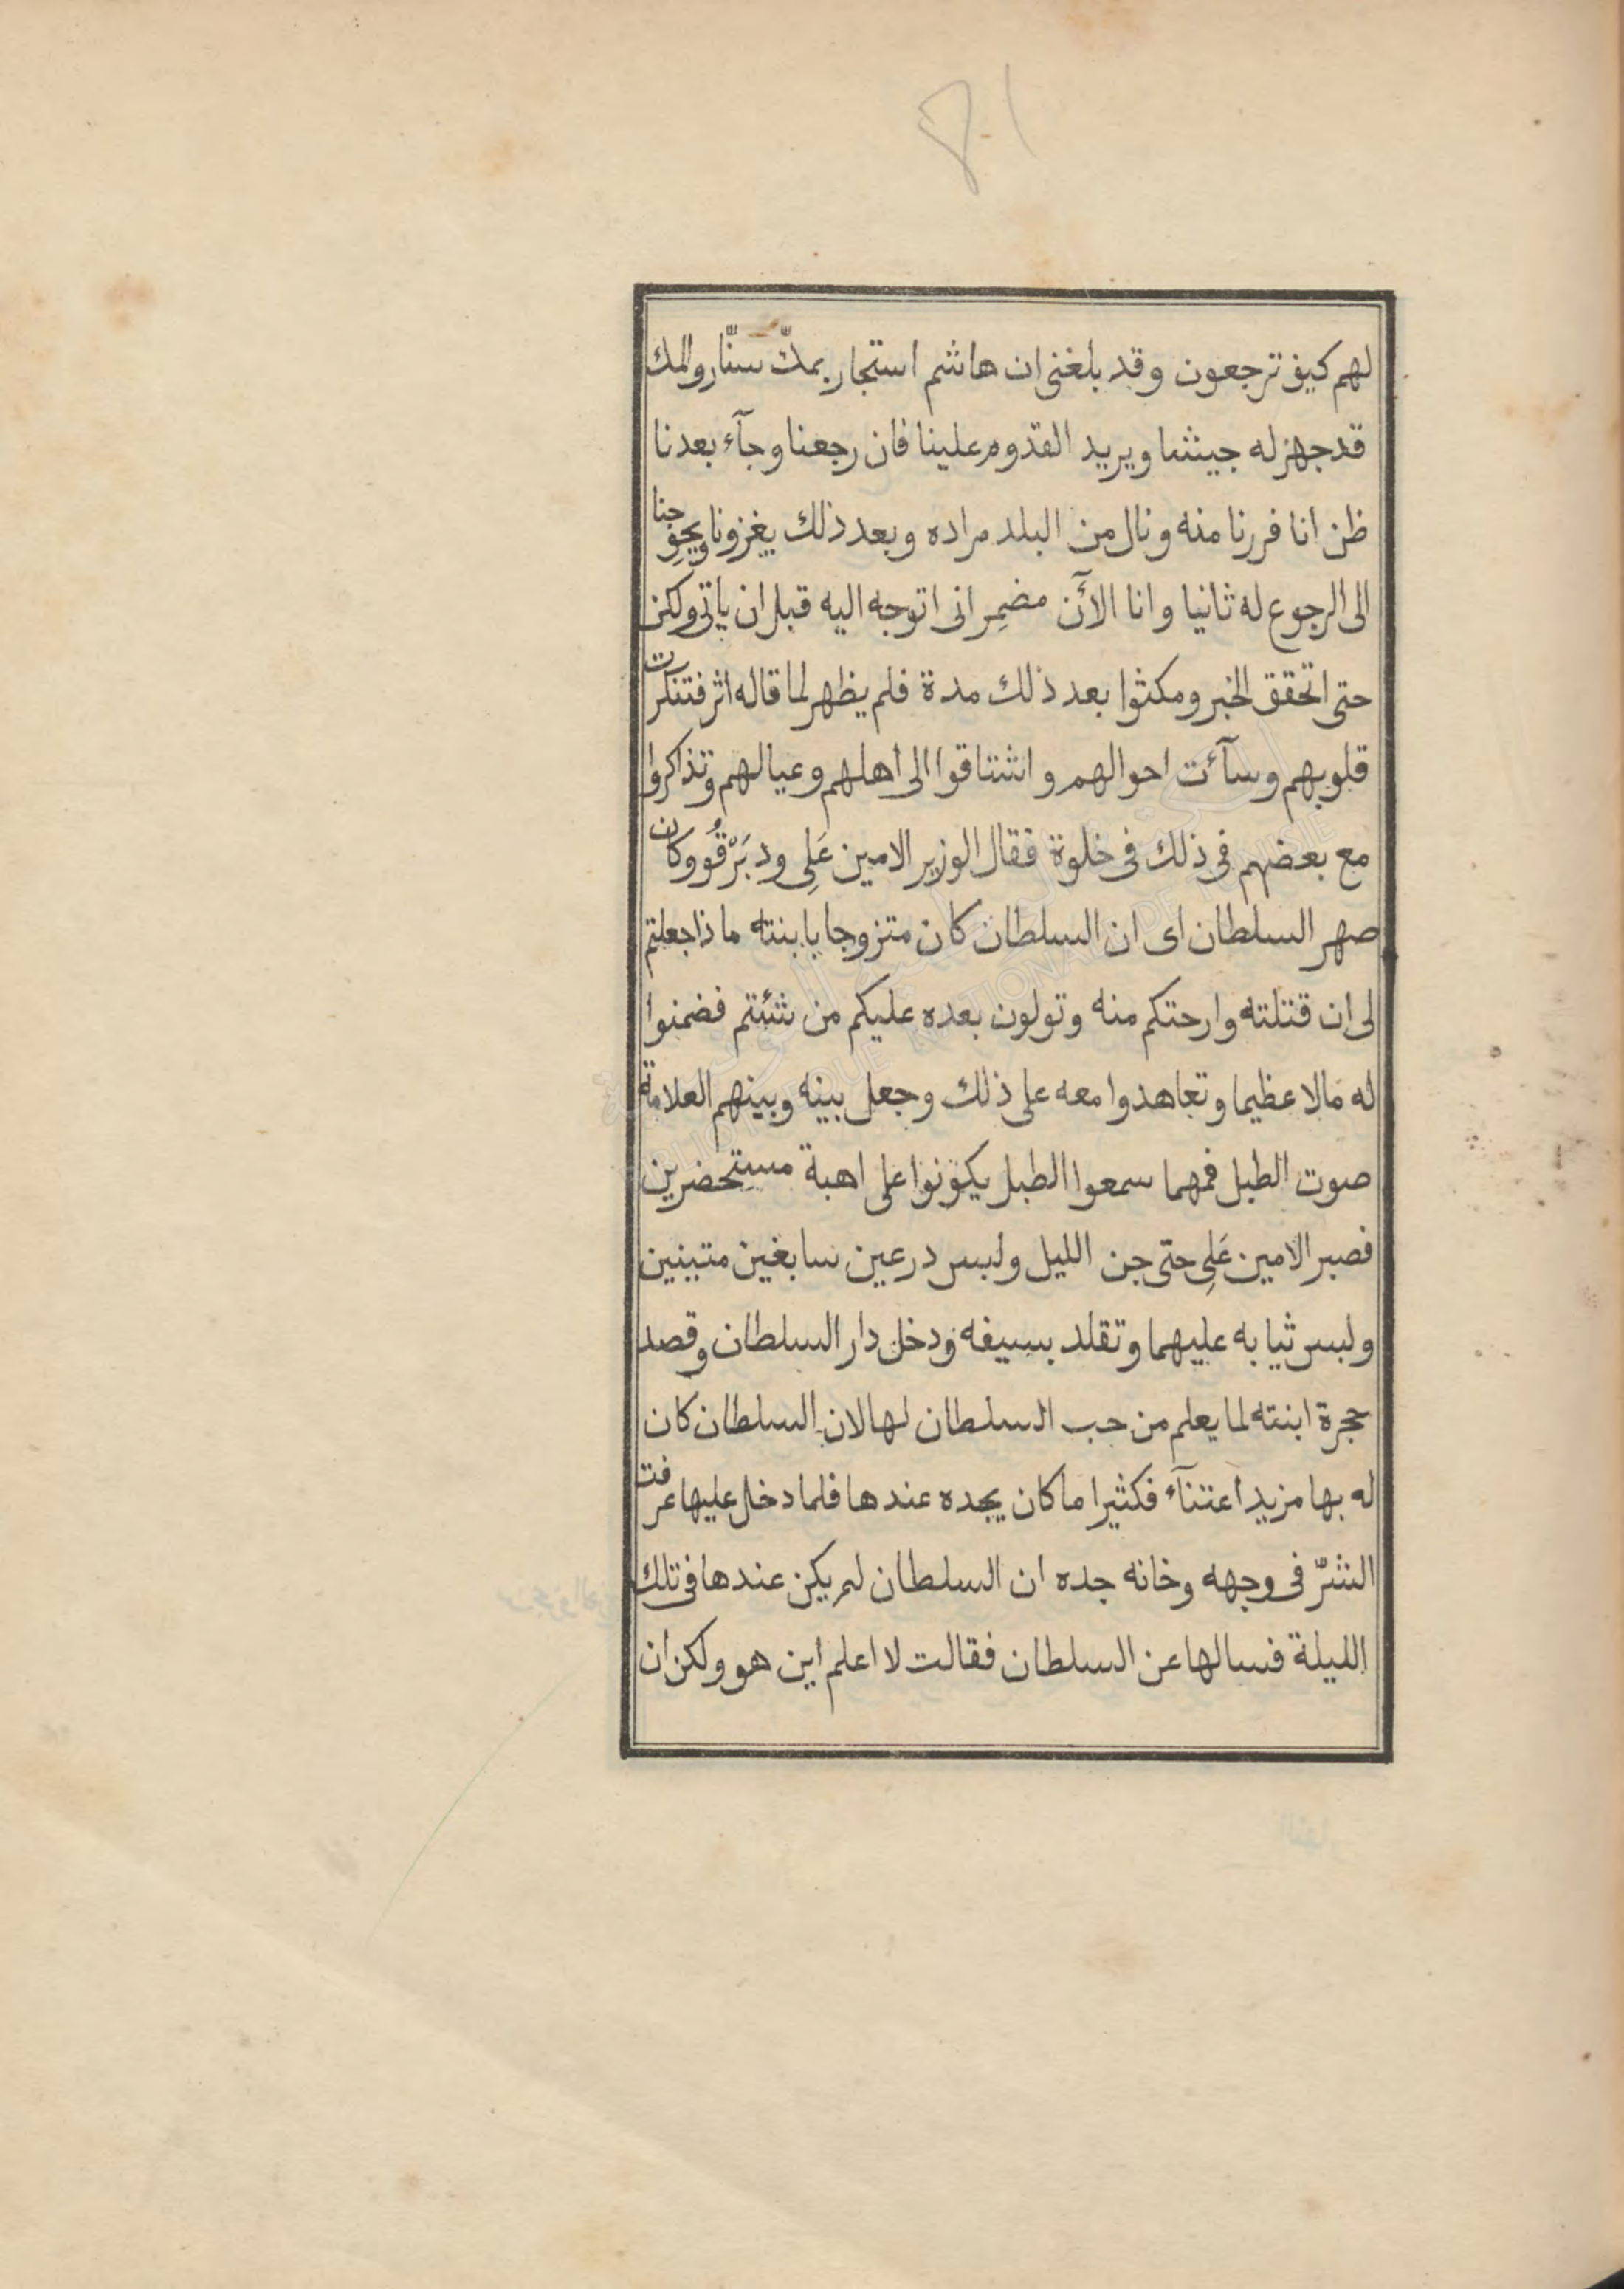 لهم كيف ترجعون وقد بلغنى ان هاشم استجار بمكّ سنّار والمك
قد جهز له جيشا ويريد القدوم علينا فان رجعنا وجآء بعدنا
ظن انا فررنا منه ونال من البلد مراده وبعد ذلك يغزونا ويحوجنا
الى الرجوع له ثانيا وانا الآن مضمِر انى اتوجه اليه قبل ان ياتى ولكن
حتى اتحقق الخبر ومكثوا بعد ذلك مدة فلم يظهر لما قاله اثر فتنكرت
قلوبهم وسآءت احوالهم واشتاقوا الى اهلهم وعيالهم وتذاكروا
مع بعضهم فى ذلك فى خلوة فقال الوزير الامين عَلِى ود بَرْقُو وكان
صهر السلطان اى ان السلطان كان متزوجا بابنته ما ذا جعلتم
لى ان قتلته وارحتكم منه وتولون بعده عليكم من شئتم فضمنوا
له مالا عظيما وتعاهدوا معه على ذلك وجعل بينه وبينهم العلامة
صوت الطبل فمهما سمعوا الطبل يكونوا على اهبة مستحضرين
فصبر الامين عَلِى حتى جن الليل ولبس درعين سابغين متينين
ولبس ثيابه عليهما وتقلد بسيفه ودخل دار السلطان وقصد
حجرة ابنته لما يعلم من حب السلطان لها لان السلطان كان
له بها مزيد اعتنآء فكثيرا ما كان يجده عندها فلما دخل عليها عرفت
الشرّ فى وجهه وخانه جده ان السلطان لم يكن عندها فى تلك
الليلة فسالها عن السلطان فقالت لا اعلم اين هو ولكن ان